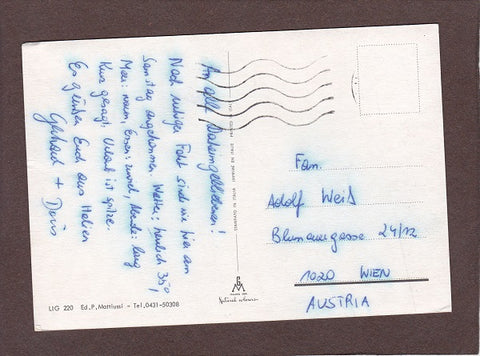 An alle Daheimgebliebenen!
Nach ruhiger Fahrt sind wir hier am
Samstag angekommen. Wetter: herrlich 35°,
Meer: warm, Essen: rund, Abende: lang
Kurz gesagt, Urlaub ist spitze.
Es grüßen Euch aus Italien
Gebhard + Doris
Fam.
Adolf Weiß
Blumauergasse 24/12
1020 WIEN
AUSTRIA
LIG 220 Ed. P. Mattiussi - Tel. 0431-50308